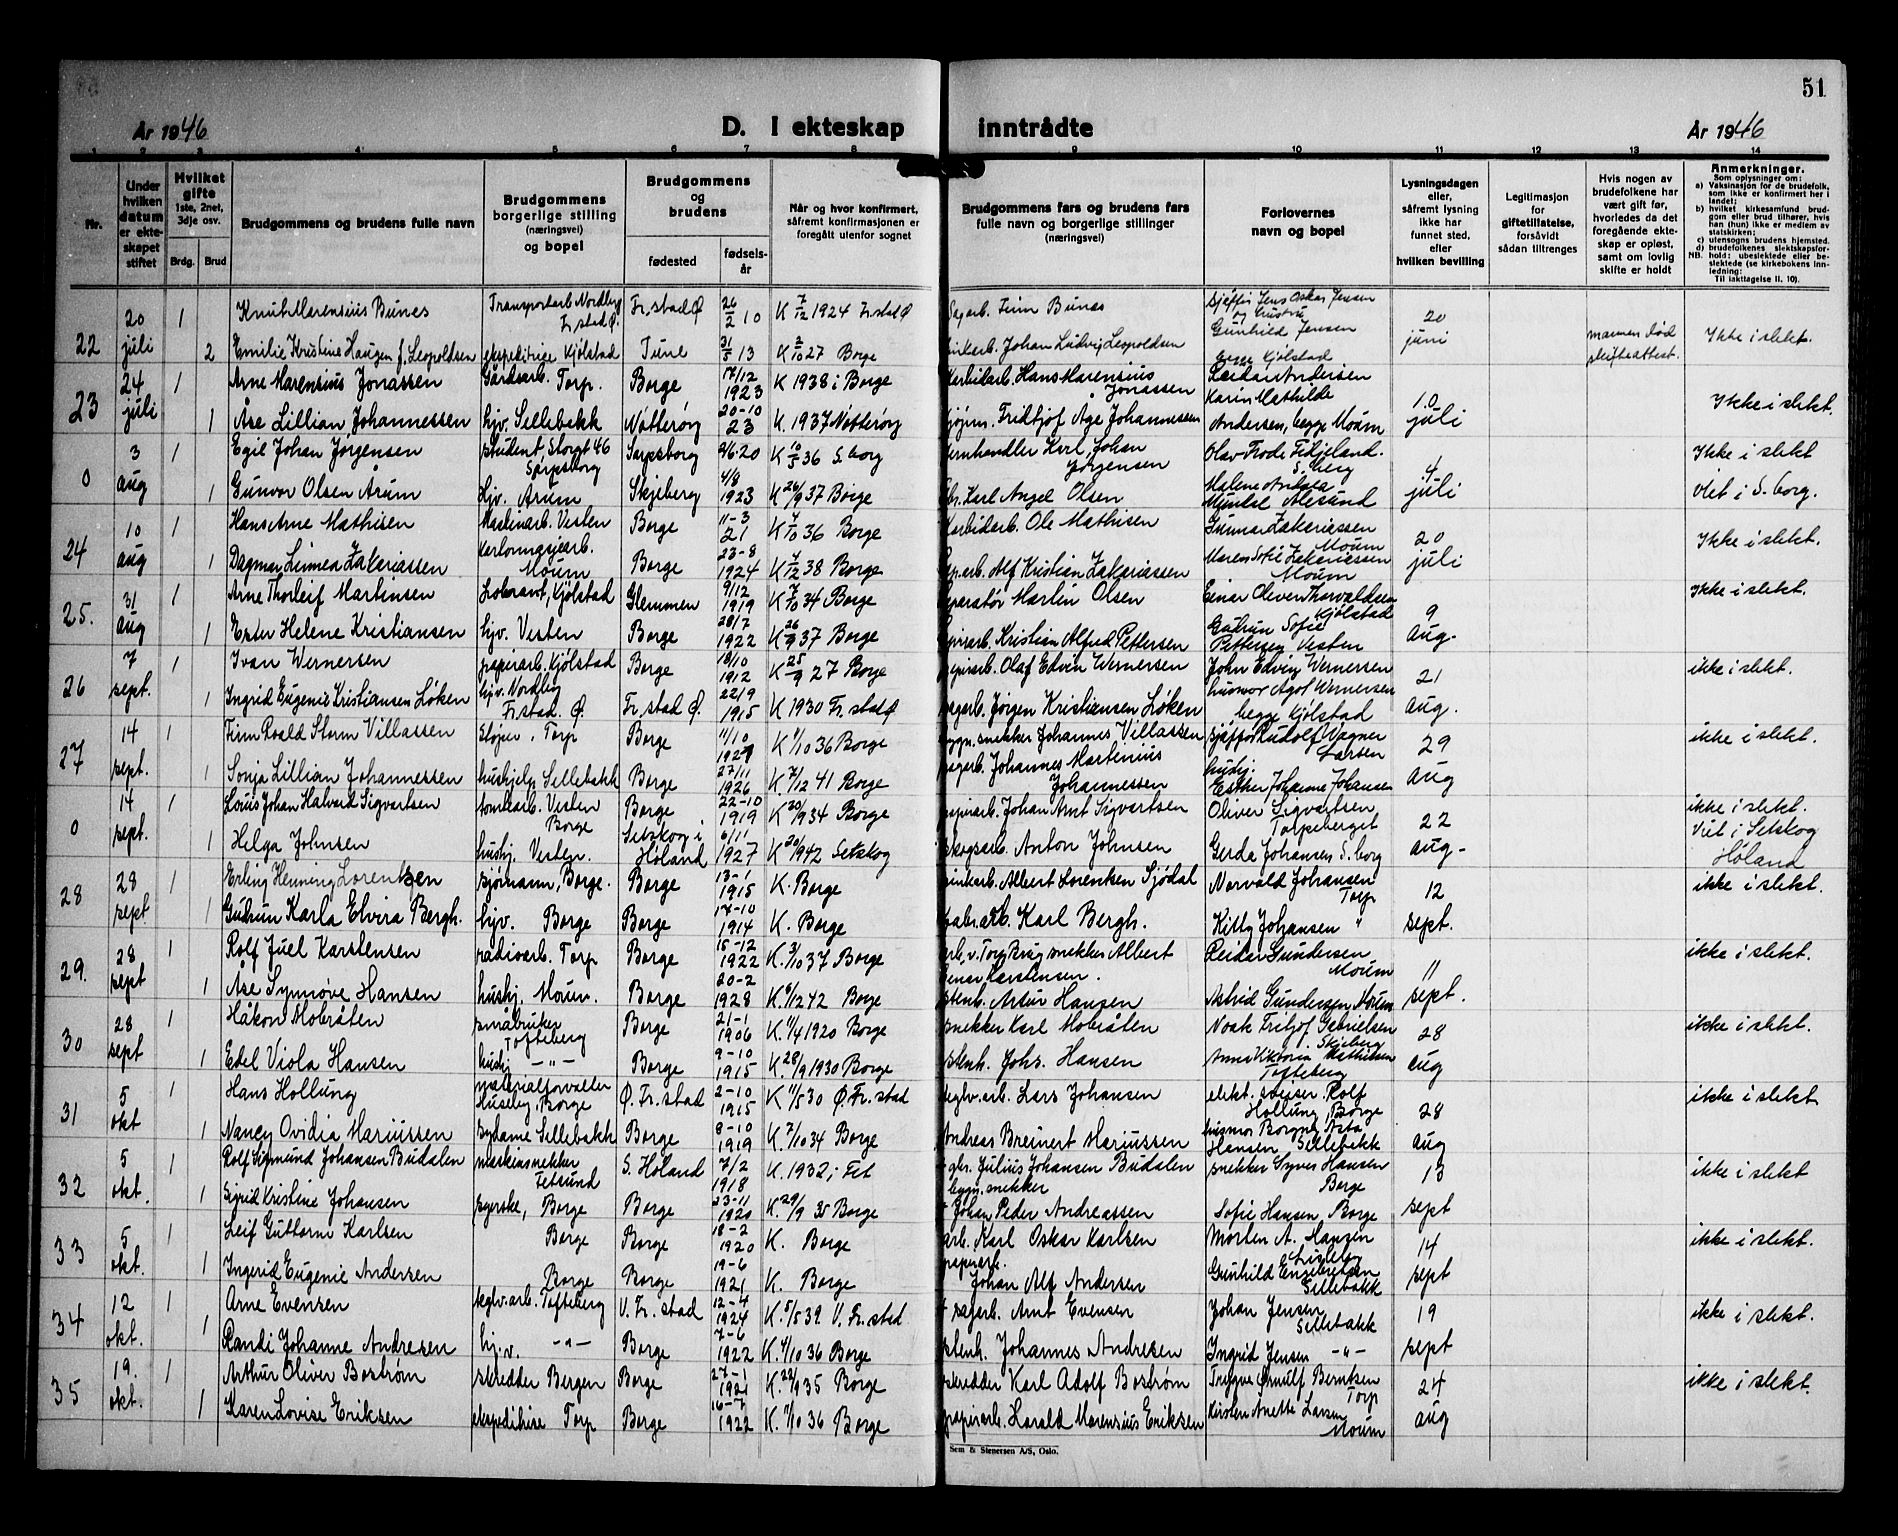 51
År 1946 D. I ekteskap inntrådte År 1946
1 2 3 4 5 6 7 8 9 10 11 12 13 14
Nr.
Under hvilken datum er ekteskapet stiftet
Hvilket gifte 1ste, 2net, 3dje osv.
Brdg. Brud
Brudgommens og brudens fulle navn
Brudgommens borgerlige stilling (næringsvei) og bopel
Brudgommens og brudens
fødested fødselsår
Når og hvor konfirmert, såfremt konfirmasjonen er foregått utenfor sognet
Brudgommens fars og brudens fars fulle navn og borgerlige stillinger (næringsvei)
Forlovernes navn og bopel
Lysningsdagen eller, såfremt lysning ikke har funnet sted, efter hvilken bevilling
Legitimasjon for giftetillatelse, forsåvidt sådan tiltrenges
Hvis nogen av brudefolkene har vært gift før, hvorledes da det foregående ekteskap er opløst, samt om lovlig skifte er holdt
Anmerkninger.
Som oplysninger om:
a) Vaksinasjon for de brudefolk, som ikke er konfirmert her i landet;
b) hvilket kirkesamfund brudgom eller brud tilhører, hvis han (hun) ikke er medlem av statskirken;
c) utensogns brudens hjemsted.
d) brudefolkenes slektskapsforhold: ubeslektede eller beslektede (se kirkebokens innledning:
NB. Til iakttagelse II. 10).
22 20 juli 1 Knut Marensius Bunes Transportarb. Nordby Fr.stad Ø. Fr.stad Ø 26/2 10 K 7/12 1924 Fr.stad Ø Finn Bunes Sjåffør Jens Oskar Jensen og hustru 20 juni
2 Emilie Kristine Haugen f. Leopoldsen ekspeditrise Kjølstad Tune 31/5 13 K 2/10 27 Borge Johan Ludvig Leopoldsen Gunhild Jensen begge Kjølstad mannen død skifteattest. Ikke i slekt.
23 24 juli 1 Arne Marensius Jonassen Gårdsarb. Torp. Borge 17/12 1923 K 1938 i Borge Karbidarb. Hans Marensius Jonassen Reidar Andersen 10 juli
1 Åse Lillian Johannessen hjv. Sellebakk Nøtterøy 20-10 23 K. 1937 Nøtterøy Fridtjof Åge Johannessen Karin Mathilde Andersen, begge Moum Ikke i slekt.
0 3 aug 1 Egil Johan Jørgensen student, Storgt 46 Sarpsborg Sarpsborg 9/6-20 K 10/5 36 S.borg Karl Johan Jørgensen Olav Frode S. berg 4 juli Ikke i slekt
1 Gunvor Olsen Årum Hjv. Årum Skjeberg 4/8 1923 K 26/9 37 Borge Karl Angel Olsen Malene Ålesund Viet i S. borg.
24 10 aug 1 Hans Arne Mathisen Maskinarb. Vesten Borge 11-3 21 K 4/10 36 Borge Karbidarb. Ole Mathisen Gunnar Zakariassen Moum 20 juli Ikke i slekt.
1 Dagmar Linnea Zakariassen Moum Borge 23-8 1924 K 4/12 38 Borge Alf Kristian Zakariassen Maren Sofie Zakariessen Moum
25. 31 aug 1 Arne Thorleif Martinsen Kjølstad Glemmen 9/12 1919 K 7/10 34 Borge Martin Olsen Einar Oliver Thorvaldsen Kjølstad 9 aug. Ikke i slekt.
1 Ester Helene Kristiansen hjv. Vesten Borge 20/7 1922 K 26/9 37 Borge Kristian Alfred Pettersen Gudrun Sofie Pettersen Vesten
26 7 sept. 1 Ivan Wernersen papirarb. Kjølstad Borge 18/10 1912 K 25/9 27 Borge papirarb. Olaf Edvin Wernersen John Edvin Wernersen 21 aug. ikke i slekt.
1 Ingrid Eugenie Kristiansen Løken hjv. Nordby Fr.stad Ø. Fr.stad Ø. 22/9 1915 K 1930 Fr.stad Ø Jørgen Kristiansen Løken husmor Agot Wernersen begge Kjølstad
27 14 sept. 1 Finn Roald Storm Villassen Sløjer, Torp Borge 11/10 K 4/10 36 Borge bygn.snekker Johannes Villassen sjåffør Rudolf Wagner Larsen 29 aug ikke i slekt.
1 Sonja Lillian Johannessen hushjelp Sellebakk Borge 27/11 1926 K. 7/12 41 Borge Johannes Martinius Johannessen hushj. Esther Johanne Johansen
0 14 sept. 1 Louis Johan Halvard Sigvartsen tomtearb. Vesten Borge Borge 22-10 1919 K 20/9 34 Borge papirarb. Johan Arnt Sigvartsen Oliver Sigvartsen Torpeberget 22 aug- ikke i slekt.
1 Helga Johnsen hushj. Vesten. Setskog i Høland 6/11 1927 K 20/9 42 Setskog skogsarb. Anton Johnsen Gerda Johansen S. borg Viet i Setskog Høland
28 28 sept 1 Erling Henning Lorentzen sjømann, Borge. Borge 13-1 1915 K. Borge Albert Lorentsen Sjødal Norvald Johansen Torp 12 sept. ikke i slekt.
1 Gudrun Karla Elvira Bergh. hjv. Borge Borge 17-10 1914 K. Borge fabr.arb. Karl Bergh. Kitty Johansen "
29. 28 sept 1 Rolf Juel Karstensen radioarb. Torp Borge 15-12 1922 K. 3/10 37 Borge arb. v. Torp Brug snekker Albert Einar Karstensen. Reidar Gundersen Moum 11 sept. ikke i slekt.
1 Åse Synnøve Hansen hushj. Moum. Borge 20-2 1928 K. 6/12 42 Borge stenh. Artur Hansen Astrid Gundersen Moum
30 28 sept 1 Håkon Mobråten småbruker Tofteberg Borge 21-1 1906 K. 4/4 1920 Borge snekker Karl Mobråten Noak Fritjof Gabrielsen Skjeberg 28 aug ikke i slekt.
1 Edel Viola Hansen hushj -"- Borge 9-10 1915 K. 28/9 1930 Borge stenh. Johs. Hansen Anna Viktoria Mathisen Tofteberg
31 5 okt 1 Hans Hollung materialforvalter Huseby, Borge Ø. Fr.stad 2-10 1915 K 11/5 30 Ø. Fr.stad Lars Johansen elekt. sveiser Rolf Hollung, Borge 28 aug ikke i slekt
1 Nancy Ovidia Mariussen sydame Sellebakk Borge 8-10 1919 K. 7/10 34 Borge Andreas Breinert Mariussen husmor Borgny Asta Hansen, Sellebakk
32 5 okt. 1 Rolf Sigmund Johansen Budalen maskinsnekker Fetsund S. Høland 7/2 1918 K. 1932, Fet gbr. Julius Johansen Budalen snekker Syver Hansen Borge 13 sept ikke i slekt
1 Sigrid Kristine Johansen syerske, Borge Borge 23-11 1920 K. 29/9 35 Borge bygn.snekker Johan Peder Andreassen Sofie Hansen Borge
33 5 okt. 1 Leif Guttorm Karlsen Borge Borge 18-2 1920 K. Borge arb. Karl Oskar Karlsen Morten A. Hansen Lisleby 14 sept ikke i slekt.
1 Ingerid Eugenie Andersen Borge Borge 19-6 1921 K. Borge papirarb. Johan Alf Andersen Gunhild Engebretsen Sellebakk
34 12 okt. 1 Arne Evensen teglv.arb. Tofteberg V. Fr.stad 12-4 1924 K. 5/5 39 V. Fr.stad sagarb. Arnt Evensen Johan Jensen Sellebakk 19 sept ikke i slekt.
1 Randi Johanne Andresen hj.v. -"- Borge 7-6 1922 K. 4/10 36 Borge stenh. Johannes Andresen Ingrid Jensen -"-
35 19. okt. 1 Arthur Oliver Bostrøm skredder Bergen Borge 27-1 1921 K. 22/9 35 Borge skredder Karl Adolf Bostrøm Trygve Ørnulf Berntsen Torp 24 aug ikke i slekt.
1 Karen Lovise Eriksen ekspeditrise Torp Borge 16-7 1922 K. 4/10 36 Borge papirarb. Harald Marensius Eriksen Kirsten Anette Larsen Moum
Sem & Stenersen A/S, Oslo.